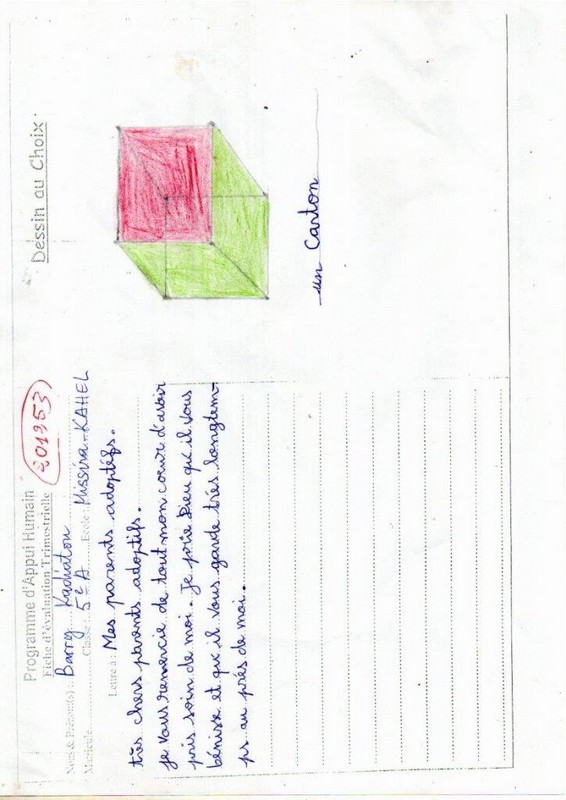 Programme d'Appui Humain
Fiche d'évaluation Trimestrielle
201953
Nom & Prénom(s) : Barry Kadiatou
Matricule Classe : 5è A Ecole : Missira-KAHEL
Lettre à : Mes parents adoptifs.
très chers parents adoptifs.
je vous remercie de tout mon cœur d'avoir
pris soin de moi. Je prie Dieu qu'il vous
bénisse et qu'il vous garde très longtem-
ps au près de moi.
Dessin au Choix.
un Carton